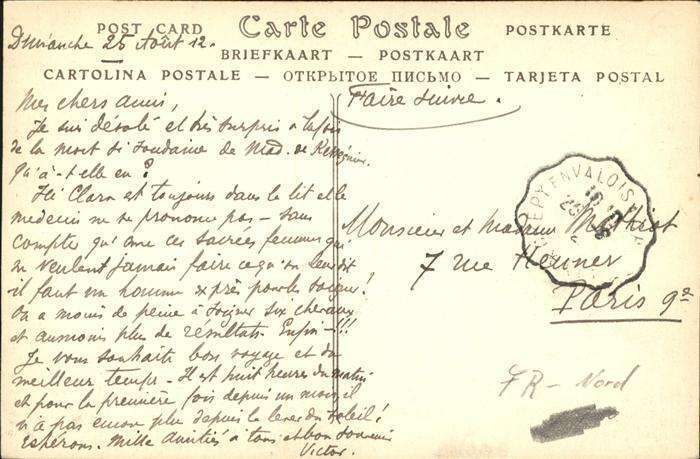 POST CARD — Carte Postale — POSTKARTE
BRIEFKAART — POSTKAART
CARTOLINA POSTALE — ОТКРЫТОЕ ПИСЬМО — TARJETA POSTAL
Dimanche 25 Août 12.
Mes chers amis,
Je suis désolé et très surpris à la fois
de la mort si soudaine de Mad. de
Qu'a-t-elle eu?
Ici Clara est toujours dans le lit et le
medecin ne se prononce pas — sans
compter qu'avec ces sacrées femmes qui
ne veulent jamais faire ce qu'on leur dit
il faut un homme exprès pour les soigner!
On a moins de peine à soigner six chevaux
et au moins plus de résultats. Enfin — !!!
Je vous souhaite bon voyage et du
meilleur temps — Il est huit heures du matin
et pour la première fois depuis un mois, il
n'a pas encore plu depuis le lever du soleil!
Espérons. Mille amitiés à tous et bon souvenir
Victor.
Faire suivre.
CREPY EN VALOIS
Monsieur et Madame
7 rue
Paris 9e
FR — Nord